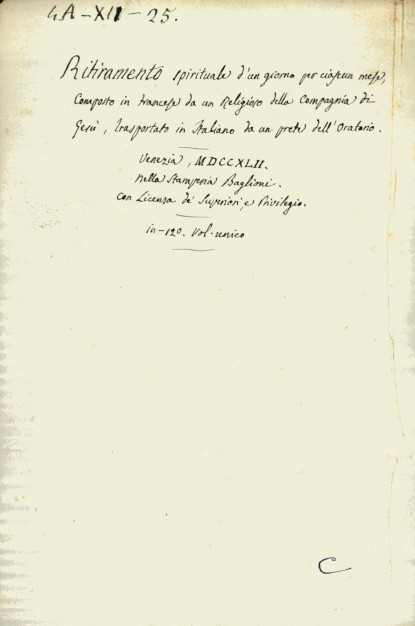 4A-XII-25.
Ritiramento spirituale d'un giorno per ciascun mese,
Composto in francese da un Religioso della Compagnia di
Gesù, trasportato in Italiano da un prete dell'Oratorio.
Venezia, MDCCXLII.
Nella Stamperia Baglioni.
Con Licenza de' Superiori, e Privilegio.
in-12o. Vol. unico
C